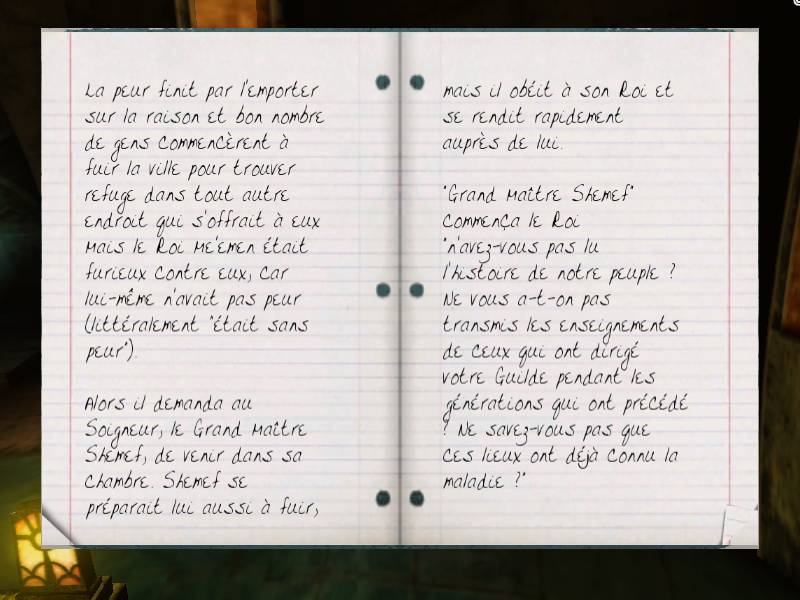 La peur finit par l'emporter
sur la raison et bon nombre
de gens commencèrent à
fuir la ville pour trouver
refuge dans tout autre
endroit qui s'offrait à eux
Mais le Roi Me'emen était
furieux contre eux, car
lui-même n'avait pas peur
(littéralement "était sans
peur").
Alors il demanda au
Soigneur, le Grand Maître
Shemef, de venir dans sa
chambre. Shemef se
préparait lui aussi à fuir,
mais il obéit à son Roi et
se rendit rapidement
auprès de lui.
"Grand Maître Shemef"
commença le Roi
"n'avez-vous pas lu
l'histoire de notre peuple ?
Ne vous a-t-on pas
transmis les enseignements
de ceux qui ont dirigé
votre Guilde pendant les
générations qui ont précédé
? Ne savez-vous pas que
ces lieux ont déjà connu la
maladie ?"